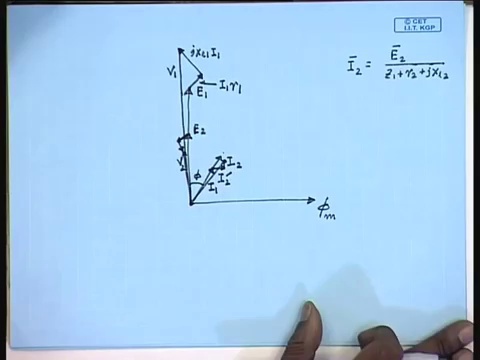 © CET
I.I.T. KGP
jx₁₁I₁
V₁
I₁r₁
E₁
E₂
V₂
φ
I₂
I₂′
I₁
φₘ
Ī₂ = Ē₂ / z₁ + r₂ + jxₗ₂